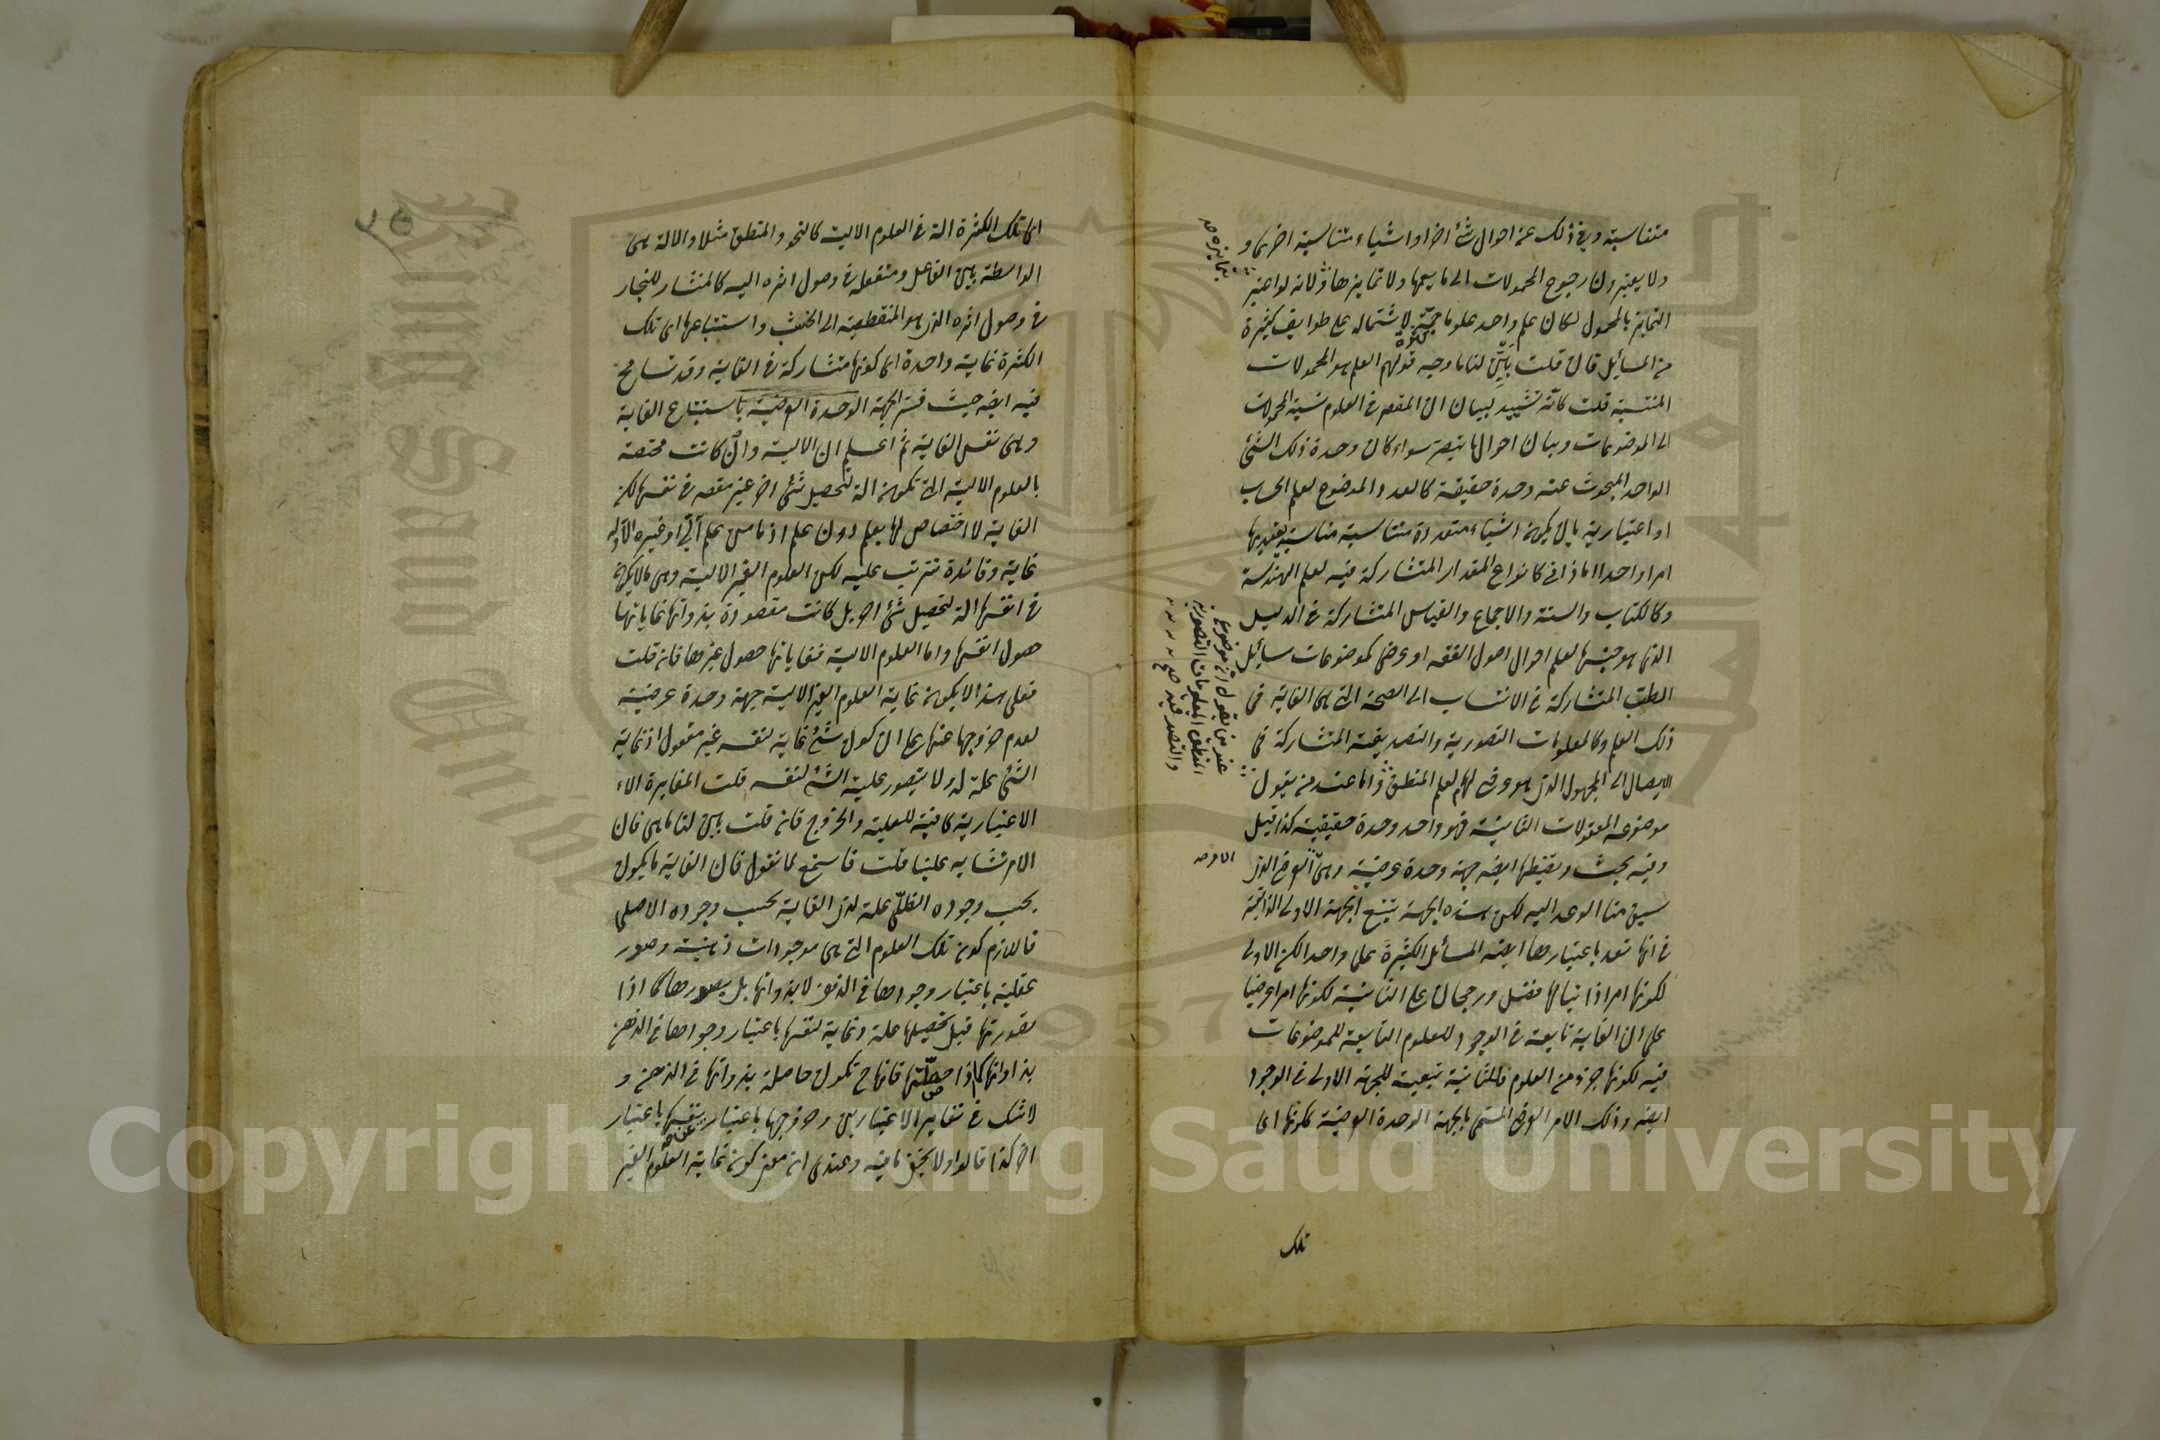 متناسبة وفي ذلك عن احوال شئ اخر او اشياء متناسبة اخر بما و
ولا يعتبرون رجوع المحمولات الى ما يعمها ولا تمايزها لانه لو اعتبر
التمايز بالمحمول لكان علم واحد علوما جمة لاشتماله على طوايف كثيرة
من المسائل فان قلت بين لنا ما وجه قولهم العلم هو المحمولات
المنتسبة قلت كانه تشييد لبيان ان المقصد في العلوم نسبة المحمولات
الى الموضوعات وبيان احوالها سواء كان وحدة ذلك الشئ
الواحد المبحوث عنه وحدة حقيقة كالعدد الموضوع لعلم الحساب
او اعتبارية بان يكون اشياء متعددة متناسبة مناسبة
امرا واحدا اما ذاتي كانواع المقدار المتشاركة فيه لعلم الهندسة
وكالكتاب والسنة والاجماع والقياس المتشاركة في الدليل
الذي هو جنسها لعلم احوال اصول الفقه او عرضي كموضوعات مسائل
الطب المتشاركة في الانتساب الى الصحة التي هي الغاية في
ذلك العلم وكالمعلومات التصورية والتصديقية المتشاركة في
الايصال الى المجهول الذي هو عرضي لهم لعلم المنطق واما عند من يقول
موضوعه المعقولات الثانية فهو واحد وحدة حقيقية كذا قيل
وفيه بحث ويضبطها ايضه جهة وحدة عرضية وهي العرض الذي
سبق منا الوعد اليه لكن هذه الجهة يتبع الجهة الاولى الذاتية
في انها تعد باعتبارها ايضه المسائل الكثيرة علما واحدا لكن الاولى
لكونها امرا ذاتيا لها فضل ورجحان على الثانية لكونها امرا عرضيا
على ان الغاية تابعة في الوجود للعلوم التابعة للموضوعات
فيه لكونها جزء من العلوم فالثانية تبعية للجهة الاولى في الوجود
ايضه وذلك الامر العرضي المسمى بالجهة الوحدة العرضية كونها اى
تلك
بتمايزه صح
عند من يقول ان موضوع
المنطق المعلومات التصورية
والتصديقية صح
الامر صح
اى تلك الكثرة الة في العلوم الالية كالنحو والمنطق مثلا والالة هي
الواسطة بين الفاعل ومنفعله في وصول اثره اليه كالمنشار للنجار
في وصول اثره الذي هو المنقطعية الى الخشب واستتباعها اى تلك
الكثرة غاية واحدة اى كونها متشاركة في الغاية وقد تسامح
فيه ايضه حيث فسر الجهة الوحدة العرضية باستتباع الغاية
وهي نفس الغاية ثم اعلم ان الالية وان كانت مختصة
بالعلوم الالية التي تكون الة لتحصيل شئ اخر غير مقصد في نفسها لكن
الغاية لا اختصاص لها بعلم دون علم اذ ما من علم آلي او غيره الا وله
غاية وفائدة تترتب عليه لكن العلوم الغير الالية وهي ما لا يكون
في انفسها الة لتحصيل شئ اخر بل كانت مقصودة بذواتها غاياتها
حصول انفسها واما العلوم الالية فغاياتها حصول غيرها فان قلت
فعلى هذا لا يكون غاية العلوم الغير الالية جهة وحدة عرضية
لعدم خروجها عنها على ان كون شئ غاية لنفسه غير معقول اذ غاية
الشئ علة له ولا يتصور علية الشئ لنفسه قلت المغايرة الا
الاعتبارية كافية للعلية والخروج فان قلت بين لنا ما هي فان
الامر تشابه علينا قلت فاستمع لما نقول فان الغاية ما يكون
بحسب وجوده الظلي علة لذي الغاية بحسب وجوده الاصلي
فاللازم كون تلك العلوم التي هي موجودات ذهنية وصور
عقلية باعتبار وجودها في الذهن لا بذواتها بل بصورها كما اذا
تصورتها قبل تحصيلها علة وغاية لنفسها باعتبار وجودها في الذهن
بذواتها كما اذا حصلتها فانها ح تكون حاصلة بذواتها في الذهن و
لا شك في تغاير الاعتبارين وخروجها باعتبار عن نفسها باعتبار
اخر كذا قالوا ولا يخفى ما فيه وعندى ان معنى كون غاية العلوم الغير